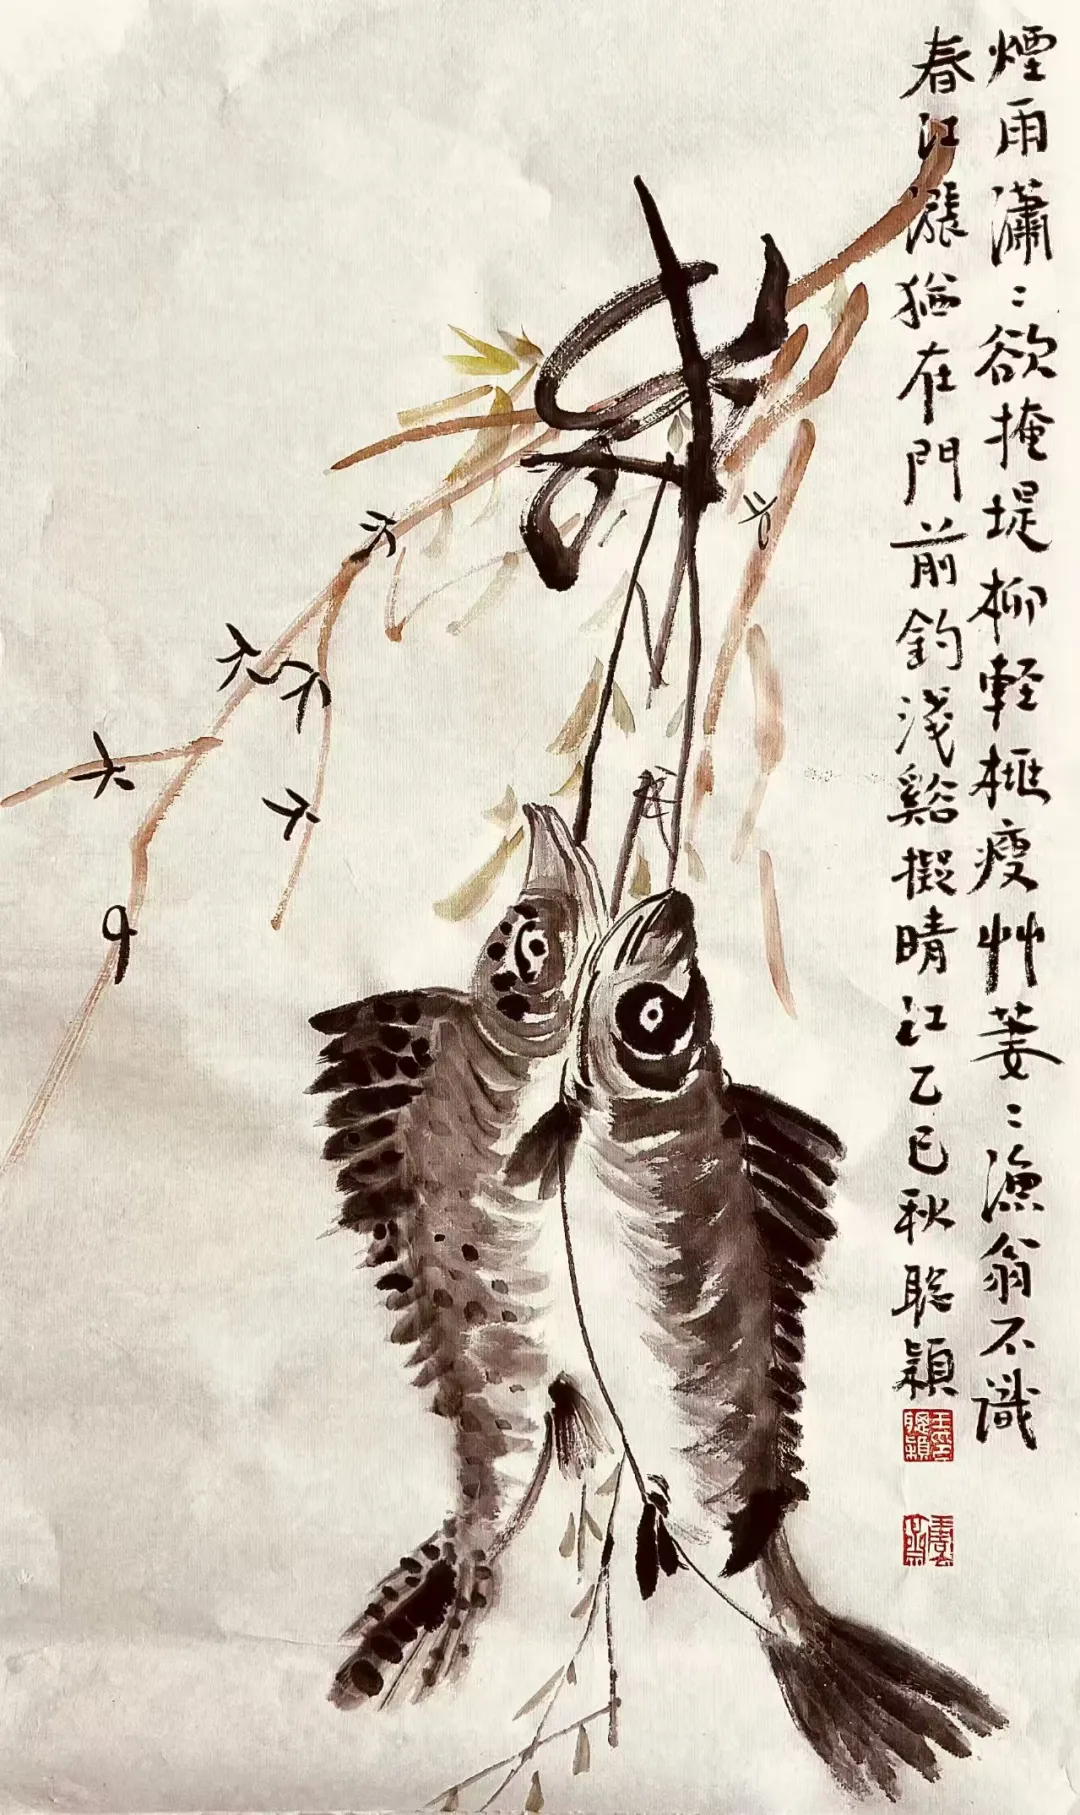 煙雨瀟〻欲掩堤柳輕桃瘦艸萋〻漁翁不識
春江漲猶在門前釣淺谿擬晴江乙巳秋聡穎
王聰穎印